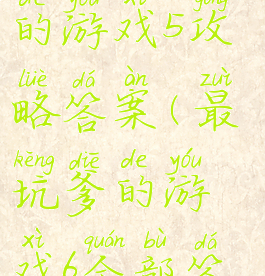 de yóu xì gōng
的游戏5攻
lüè dá àn zuì
略答案(最
kēng diē de yóu
坑爹的游
xì quán bù dá
戏6全部答